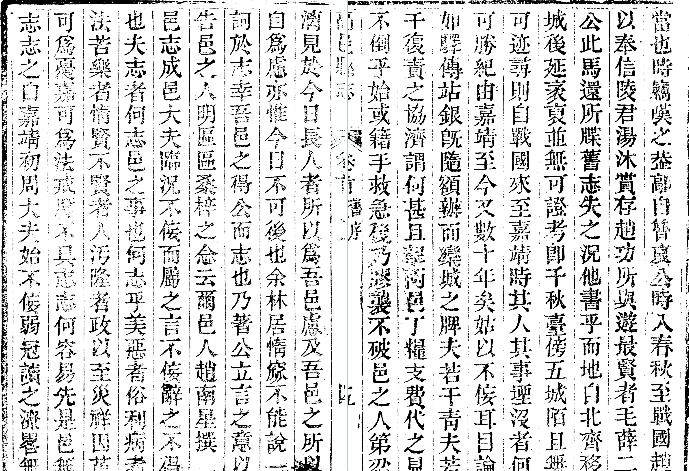 當也時竊嘆之蓋鄗自魯哀公時入春秋至戰國趙
以奉信陵君湯沐賞存趙功所與遊最賢者毛薛二
公此馬還所牒舊志失之況他書乎而地自北齊移
城後延袤夏並無可證考即千秋臺傍五城陌且無
可迹尋則自戰國來至嘉靖時其人其事堙沒者何
可勝紀由嘉靖至今又數十年矣姑以不佞耳目論
如驛傳站銀既隨額辦而欒城之牌夫若干青夫若
千復責之協濟謂何甚且 高邑丁糧支費代之
不倒乎始或藉手救急後乃 襲不破邑之人第
高邑縣志 卷首 舊序
見於今日長人者所以爲吾邑慮及吾邑之所以
自爲慮亦惟今日不可後也余林居惰窳不能說一
詞於志幸吾邑之得公而志也乃著公立言之意以
告邑之人明區區桑梓之念云爾邑人趙南星撰
邑志成邑大夫臨況不佞而屬之言不佞辭之不得
也夫志者何志邑之事也何志乎美惡者俗利病者
法者樂者情賢不賢者人汚隆者政以至災祥因革
可爲憂嘉可爲法戒 不具志志何容易先是邑無
志志之自嘉靖初周大夫始不佞弱冠讀之 畧無